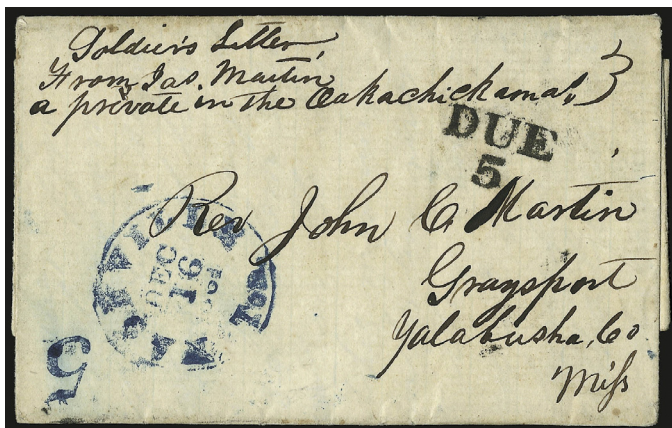 Soldier's Letter,
From Jas. Martin
a private in the Oakachickamas,
DUE
5
Rev John C Martin
Graysport
Yalabusha, Co
Miss
NASHVILLE Ten
DEC
16
5